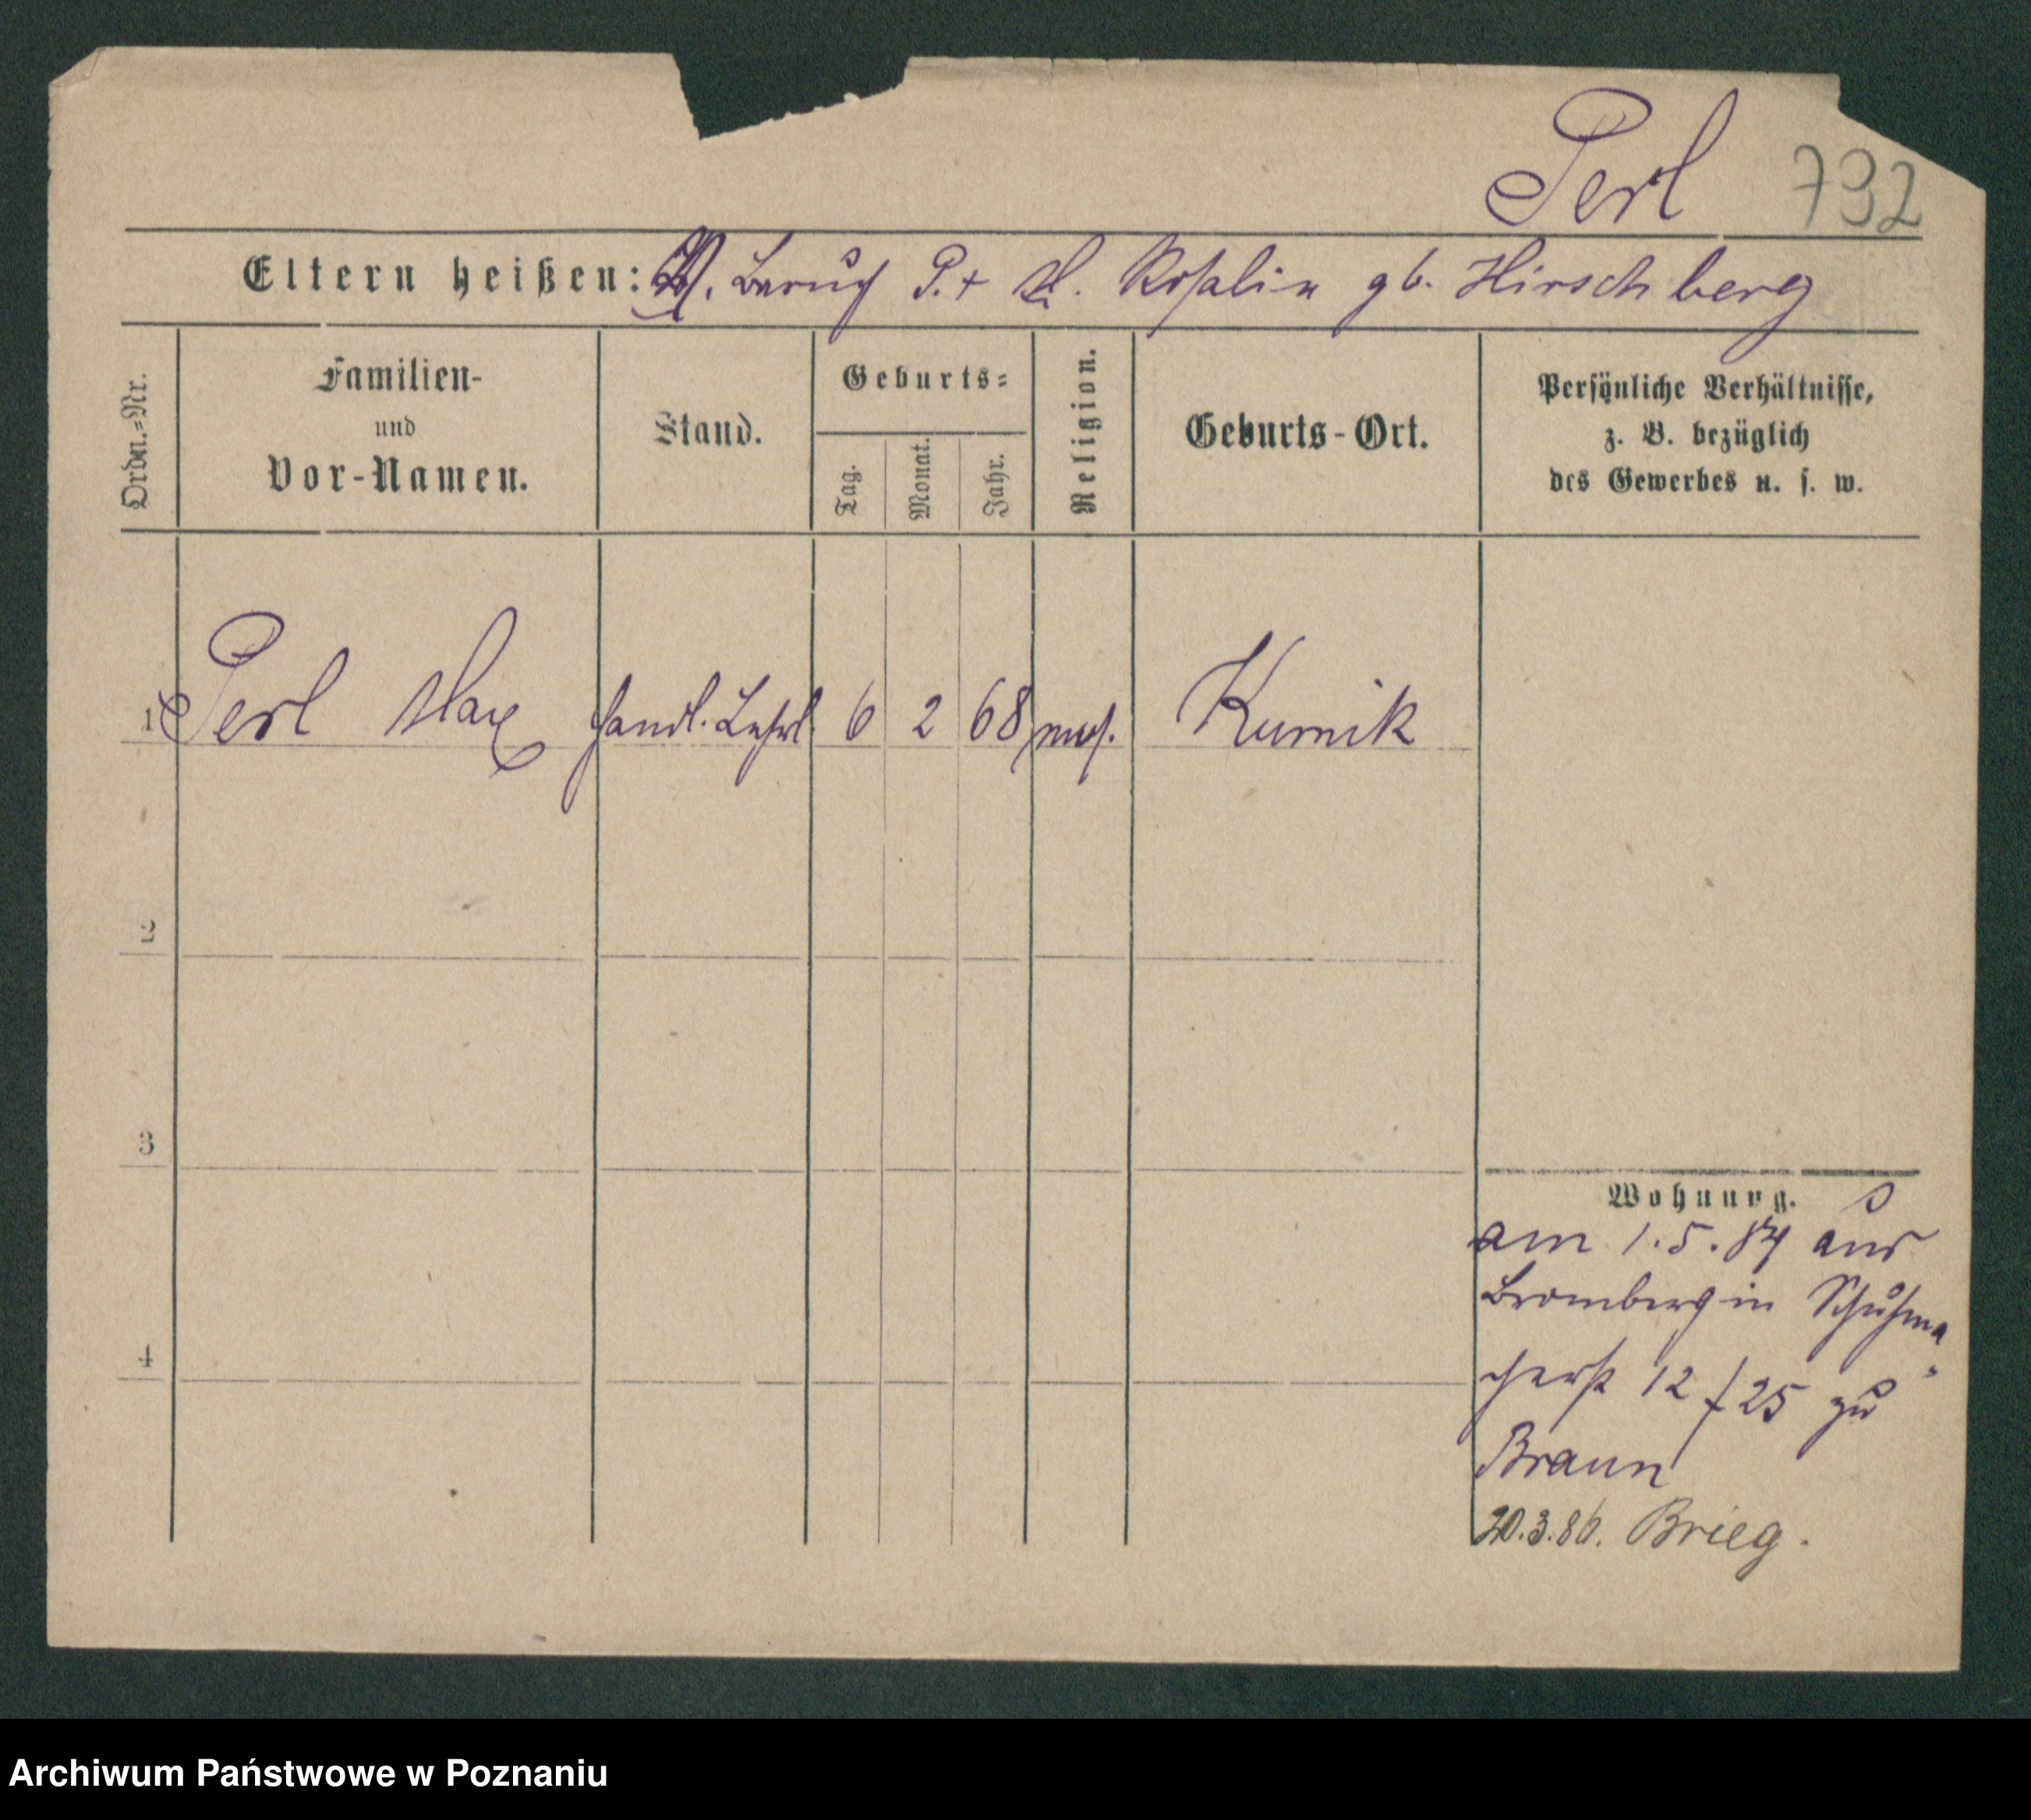 Perl 732
Eltern heißen: Baruch P. + Rosalie gb. Hirschberg
Ordn.-Nr.
Familien-
und
Vor-Namen.
Stand.
Geburts-
Tag.
Monat.
Jahr.
Religion.
Geburts-Ort.
Persönliche Verhältnisse,
z. B. bezüglich
des Gewerbes u. s. w.
1 Perl Max Handl. Lehrl. 6 2 68 mos. Kurnik
2
3
Wohnung.
am 1.5.84 aus
Bromberg in Schuhma
cherst 12/25 zu
4
Braun
20.3.86. Brieg.
Archiwum Państwowe w Poznaniu